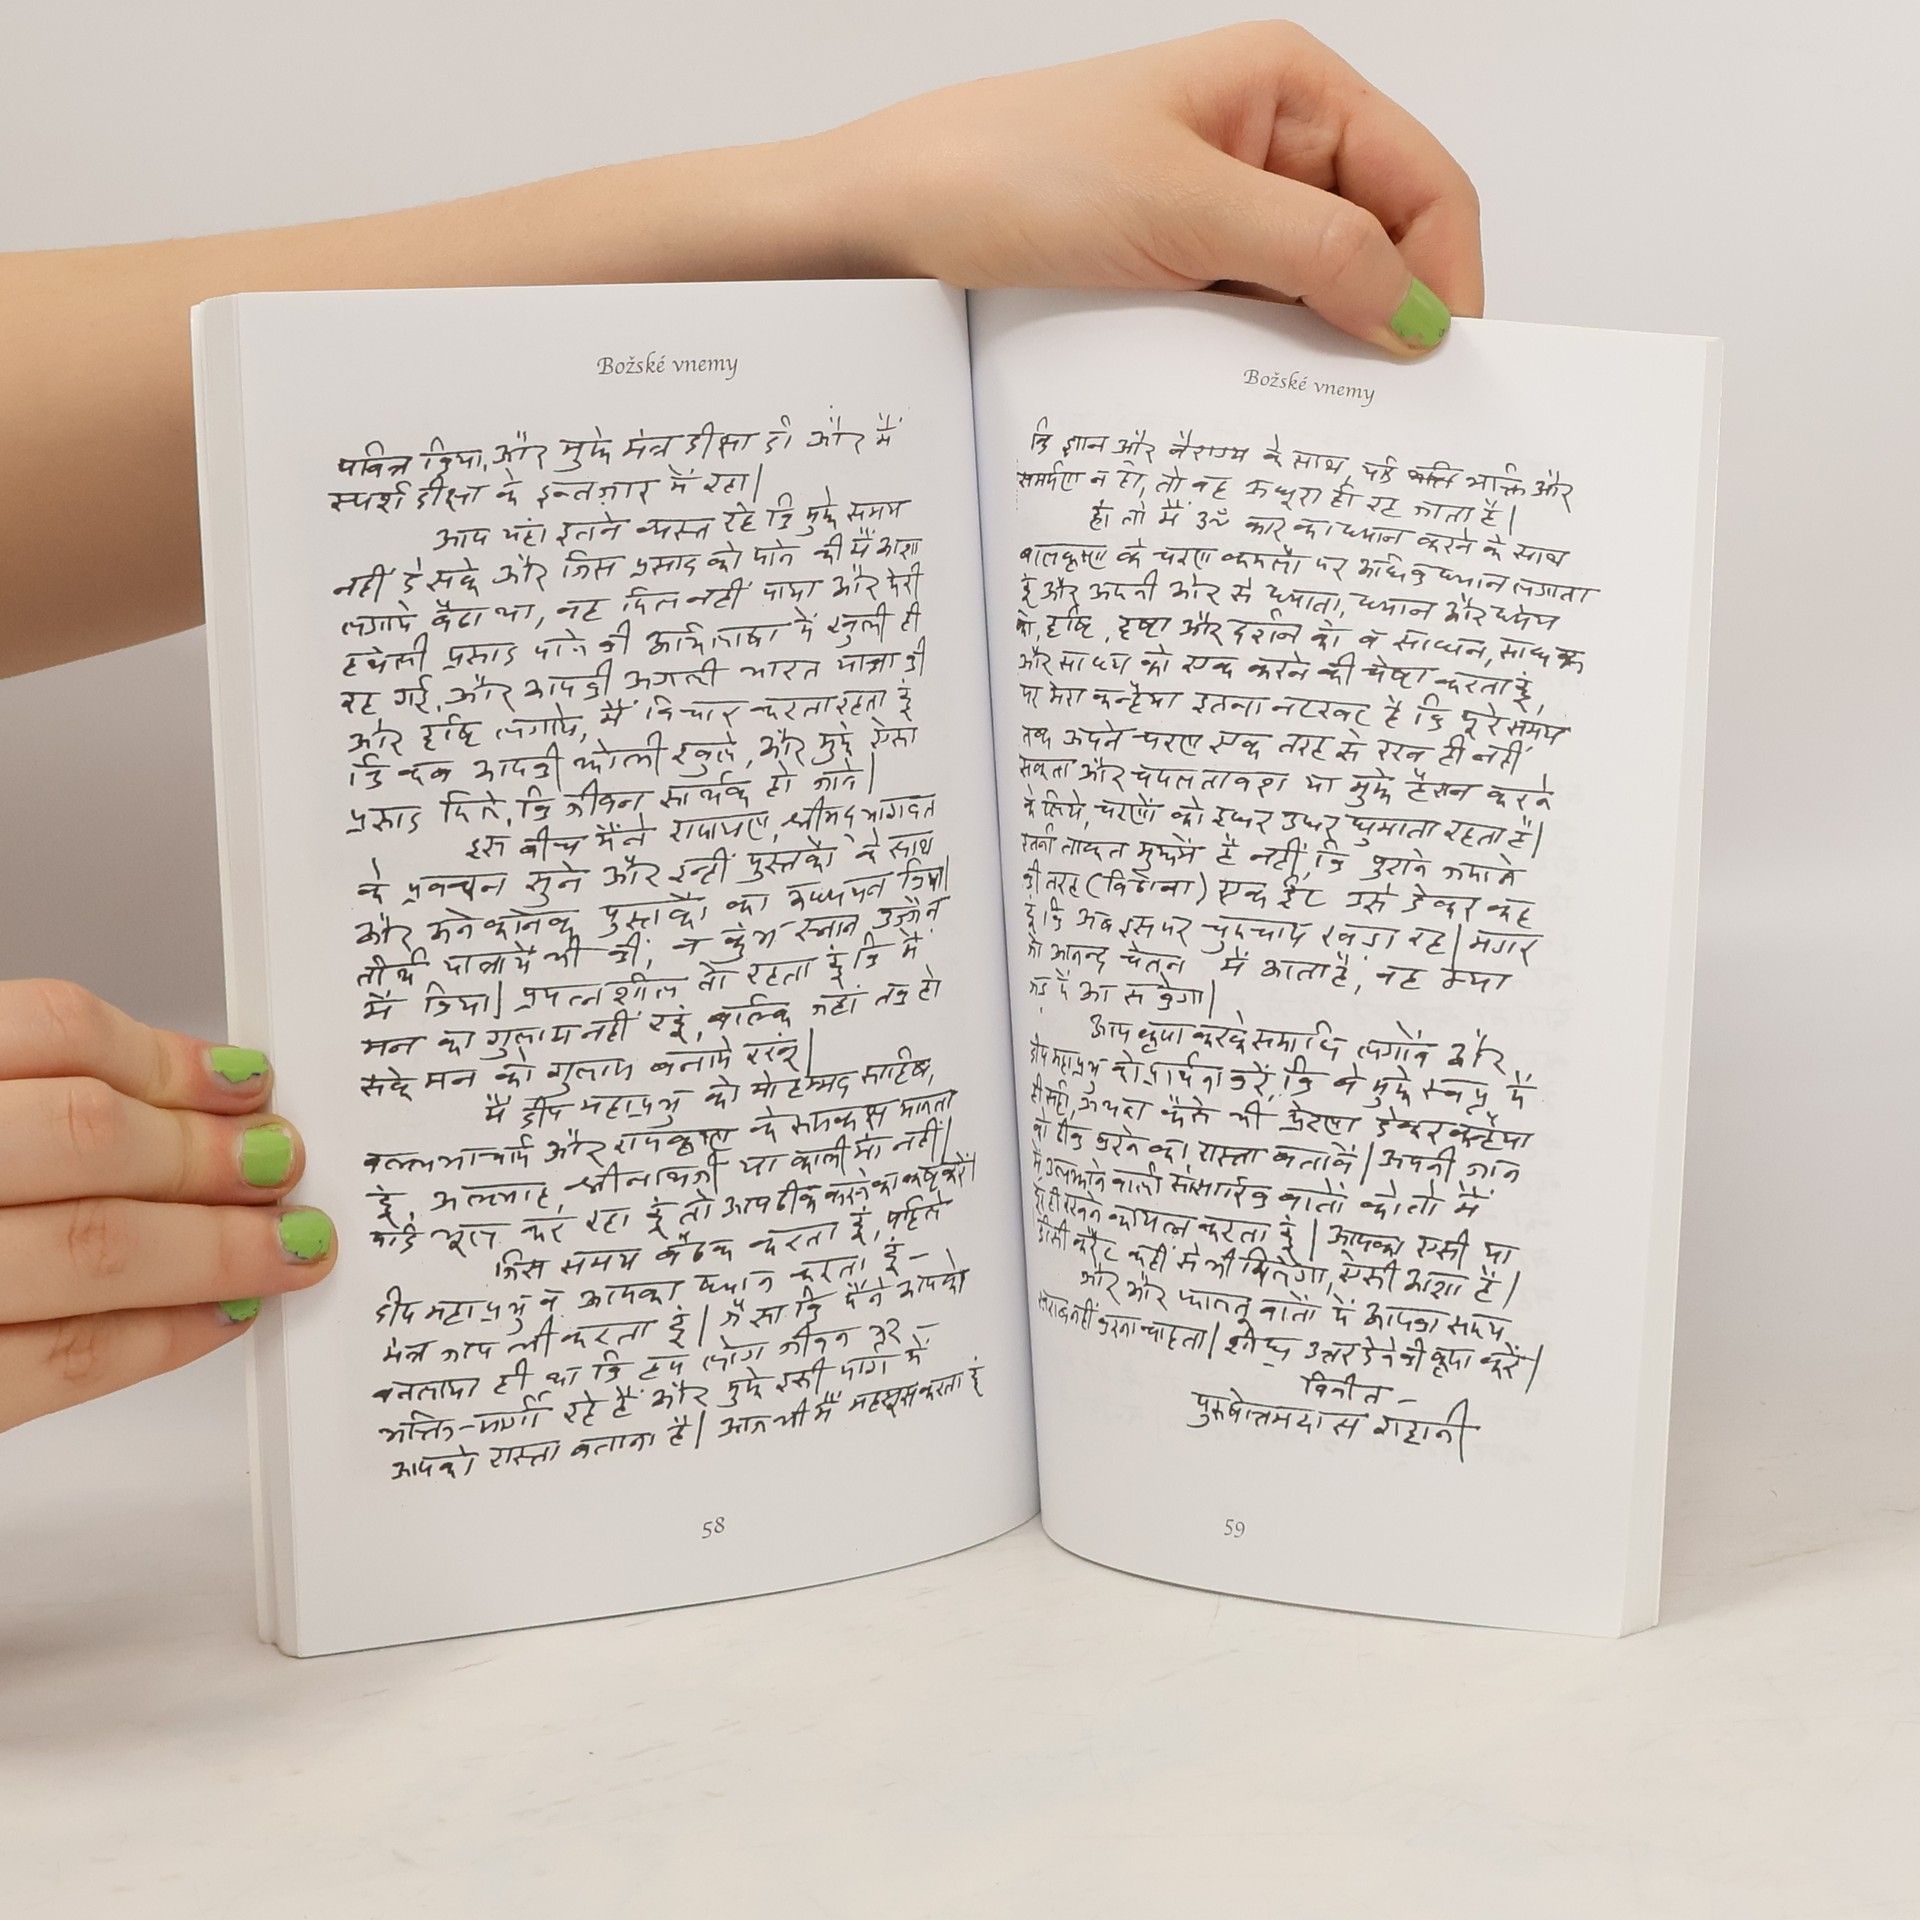 Božské vnemy
पवित्र किया, और मुझे मंत्र दीक्षा दी और मैं
स्पर्श दीक्षा के इन्तज़ार में रहा|
आप यहां इतने व्यस्त रहे कि मुझे समय
नहीं दे सके और जिस प्रसाद को पाने की मैं आशा
लगाये बैठा था, वह मिल नहीं पाया और मेरी
हथेली प्रसाद पाने की अभिलाषा में खुली ही
रह गई, और आपकी अगली भारत यात्रा की
ओर दृष्टि लगाये, मैं विचार करता रहता हूं
कि कब आपकी झोली खुले, और मुझे ऐसा
प्रसाद मिले, कि जीवन सार्थक हो जावे|
इस बीच मैंने रामायण, श्रीमद् भागवत
के प्रवचन सुने और इन्हीं पुस्तकों के साथ
और अनेकानेक पुस्तकों का अध्ययन किया|
तीर्थ यात्रायें भी कीं, व कुंभ स्नान उज्जैन
में किया| प्रयत्नशील तो रहता हूं कि मैं
मन का गुलाम नहीं रहूं, बल्कि जहां तक हो
सके मन को गुलाम बनाये रखूं|
मैं दीप महाप्रभु को मोहम्मद साहिब,
वल्लभाचार्य और रामकृष्ण के समकक्ष मानता
हूं, अल्लाह, श्रीनाथजी या काली मां नहीं|
कोई भूल कर रहा हूं तो आप ठीक करने का कष्ट करें|
जिस समय बैठक करता हूं, पहिले
दीप महाप्रभु व आपका ध्यान करता हूं –
मंत्र जाप भी करता हूं| जैसा कि मैंने आपको
बतलाया ही था कि हम लोग जीवन भर –
भक्ति-मार्गी रहे हैं और मुझे इसी मार्ग में
आपको रास्ता बताना है| आज भी मैं महसूस करता हूं
58
Božské vnemy
कि ज्ञान और वैराग्य के साथ, यदि भक्ति और
समर्पण न हो, तो वह अधूरा ही रह जाता है|
हां तो मैं ॐ कार का ध्यान करने के साथ
बालकृष्ण के चरण कमलों पर अधिक ध्यान लगाता
हूं और अपनी ओर से ध्याता, ध्यान और ध्येय
को, दृष्टि, दृष्टा और दर्शन को व साधन, साधक
और साध्य को एक करने की चेष्टा करता हूं,
पर मेरा कन्हैया इतना नटखट है कि पूरे समय
तक अपने चरण एक तरह से रख ही नहीं
सकता और चंचलतावश या मुझे हैरान करने
के लिये, चरणों को इधर उधर घुमाता रहता है|
इतनी ताकत मुझमें है नहीं, कि पुराने जमाने
की तरह (विठोबा) एक ईंट उसे देकर कह
दूं कि अब इस पर चुपचाप खड़ा रह| मगर
जो आनन्द चेतन में आता है, वह क्या
जड़ में आ सकेगा|
आप कृपा करके समाधि लगावें और
दीप महाप्रभु को प्रार्थना करें, कि वे मुझे स्वप्न में
ही सही, अथवा कैसे भी प्रेरणा देकर कन्हैया
को ठीक करने का रास्ता बतावें| अपनी जान
में उलझाने वाली सांसारिक बातों को तो मैं
दूर ही रखने का यत्न करता हूं| आपका एसी या
डीसी करैंट कहीं से भी मिलेगा, ऐसी आशा है|
और और फालतू बातों में आपका समय
खराब नहीं करना चाहता| शीघ्र उत्तर देने की कृपा करें|
विनीत –
पुरुषोत्तमदास
59